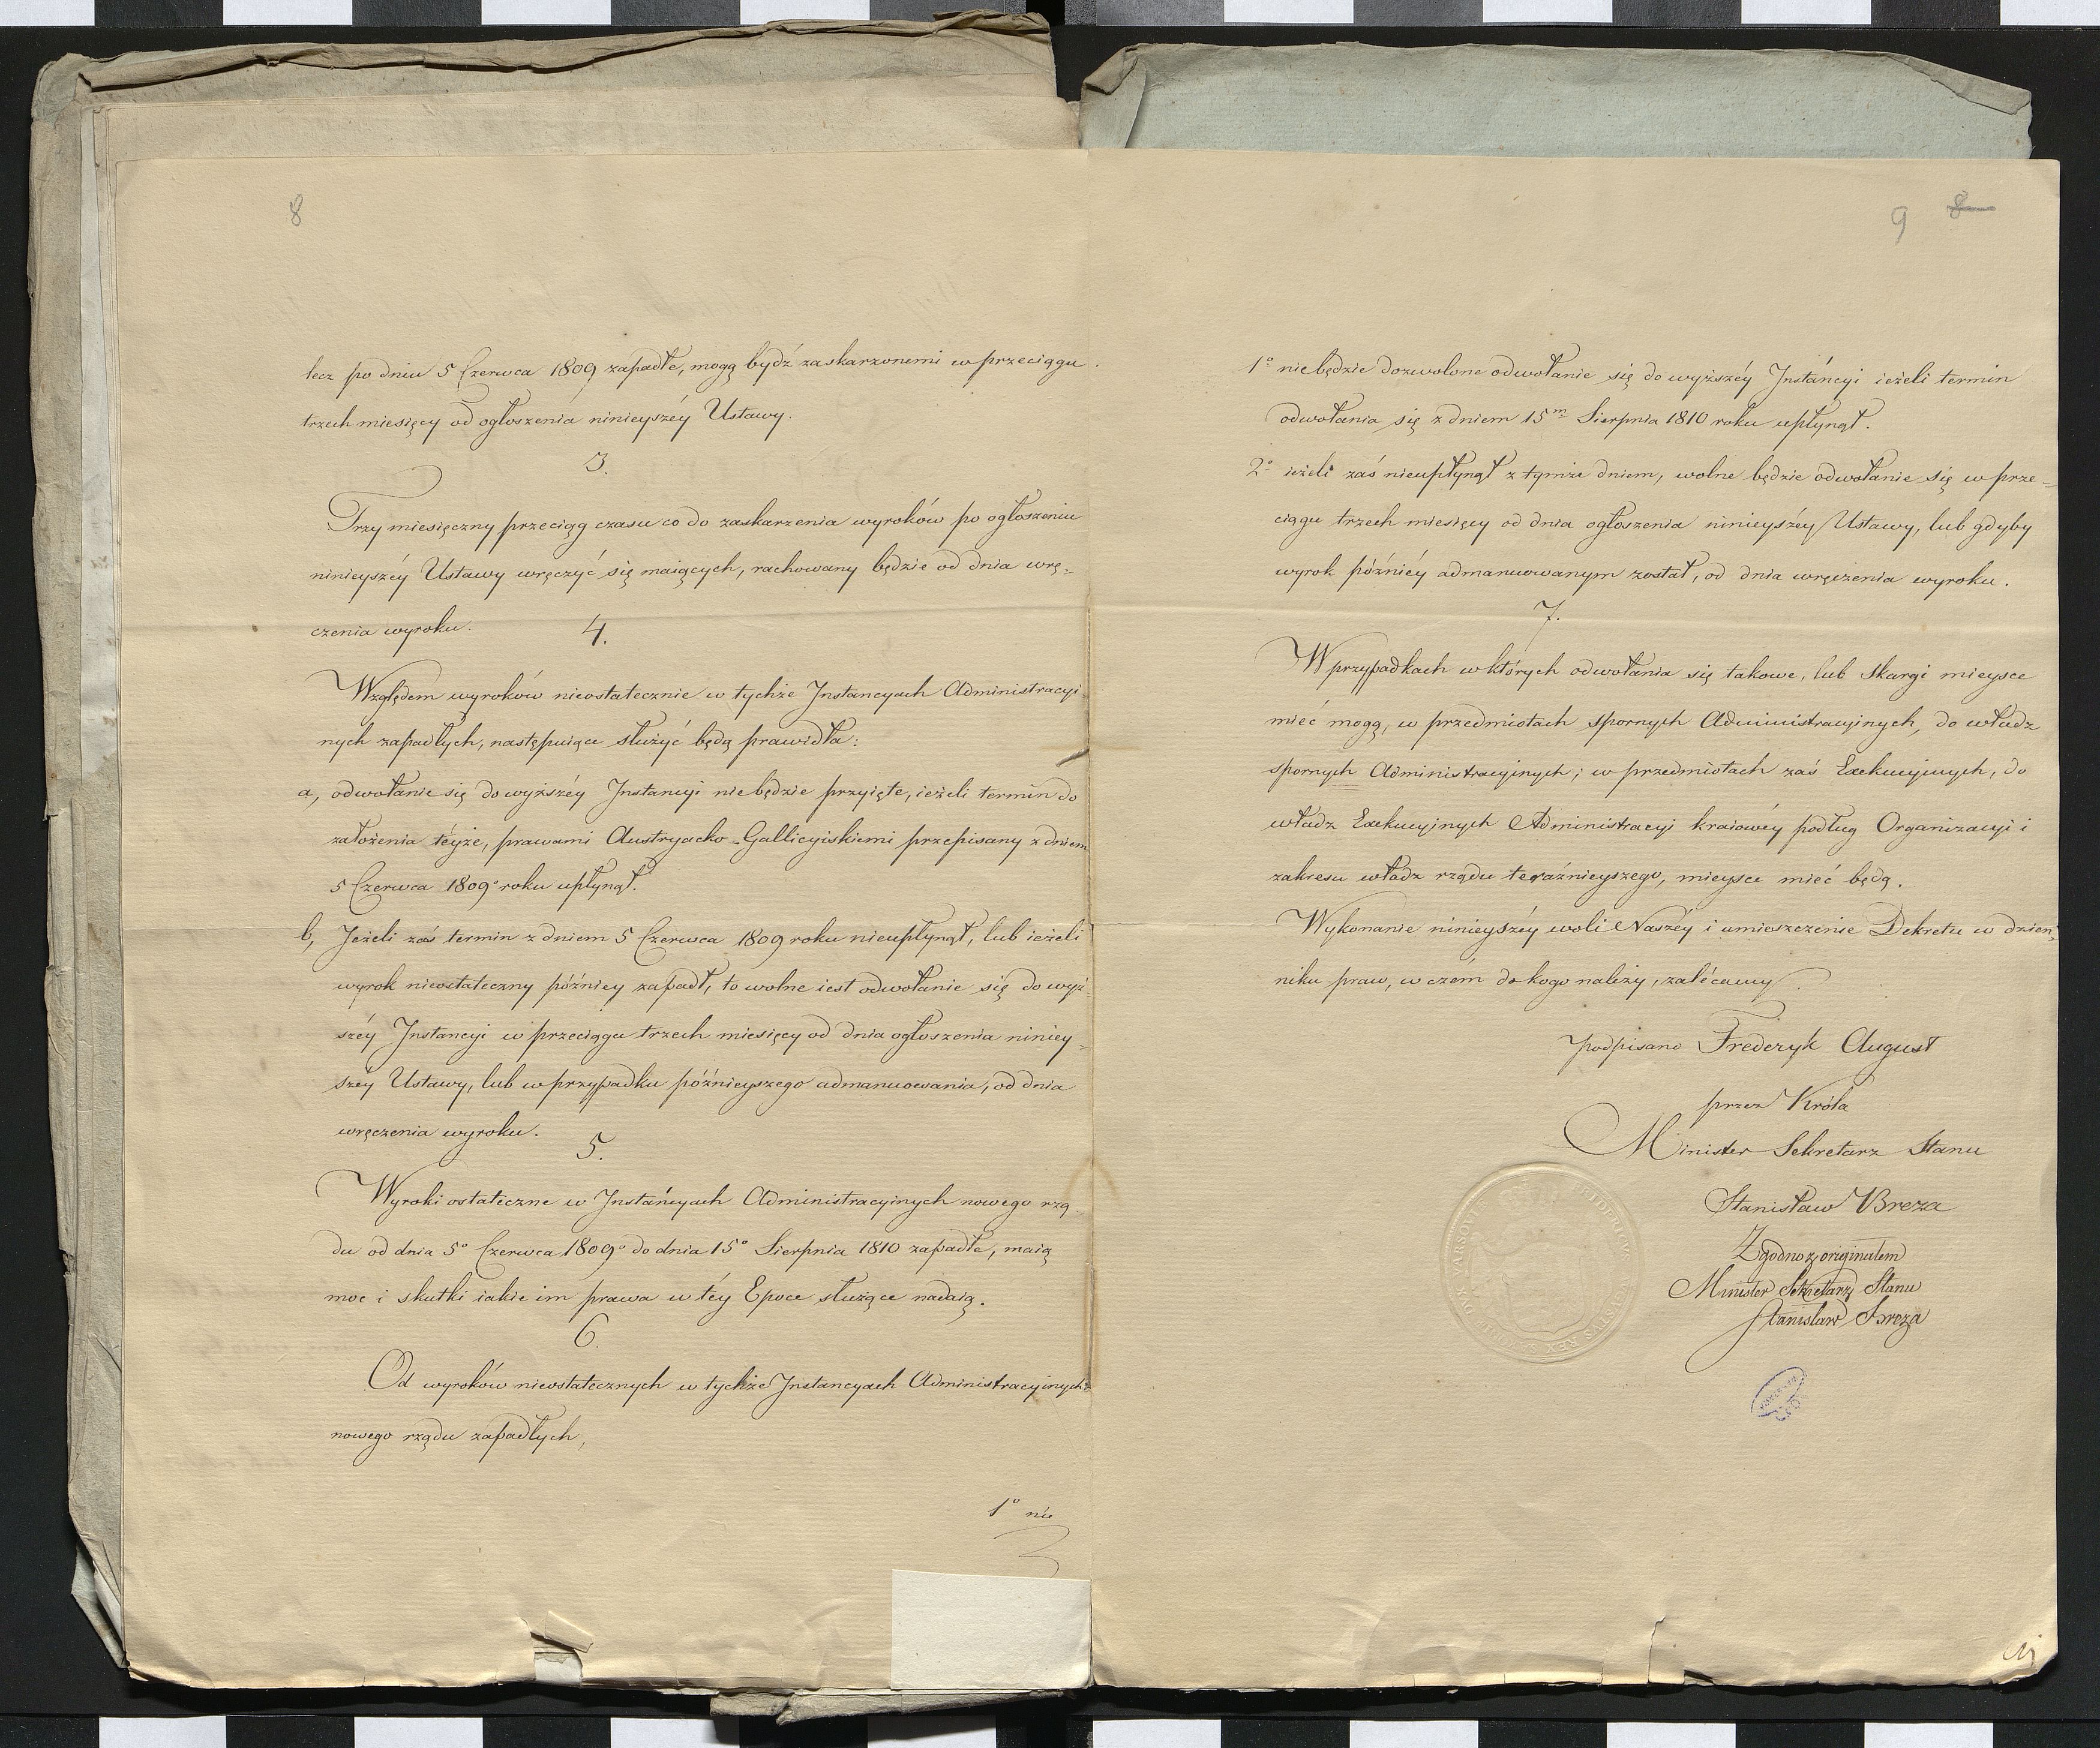 8
lecz po dniu 5 Czerwca 1809 zapadłe, mogą bydź zaskarzonemi w przeciągu
trzech miesięcy od ogłoszenia ninieyszéy Ustawy.
3.
Trzy miesięczny przeciąg czasu co do zaskarzenia wyroków po ogłoszeniu
ninieyszéy Ustawy wręczyć się maiących, rachowany będzie od dnia wrę-
czenia wyroku.
4.
Względem wyroków nieostatecznie w tychże Instancyach Administracyi
nych zapadłych, następuiące służyć będą prawidła:
a, odwołanie się do wyższéy Instancyi nie będzie przyięte, ieżeli termin do
założenia téyże, prawami Austryacko-Gallicyiskiemi przepisany z dniem
5 Czerwca 1809º roku upłynął.
b, Jeżeli zaś termin z dniem 5 Czerwca 1809 roku nieupłynął, lub ieżeli
wyrok nieostateczny późniey zapadł, to wolne iest odwołanie się do wyż-
széy Instancyi w przeciągu trzech miesięcy od dnia ogłoszenia niniey-
széy Ustawy, lub w przypadku późnieyszego admanuowania, od dnia
wręczenia wyroku.
5.
Wyroki ostateczne w Instancyach Administracyinych nowego rzą
du od dnia 5º Czerwca 1809º do dnia 15º Sierpnia 1810 zapadłe, maią
moc i skutki iakie im prawa w téy Epoce służące nadaią.
6.
Od wyroków nieostatecznych w tychże Instancyach Administracyinych
nowego rządu zapadłych,
1º nie
9 8
1º nie będzie dozwolone odwołanie się do wyższéy Instancyi ieżeli termin
odwołania się z dniem 15m Sierpnia 1810 roku upłynął.
2º ieżeli zaś nieupłynął z tymże dniem, wolne będzie odwołanie się w prze-
ciągu trzech miesięcy od dnia ogłoszenia ninieyszéy Ustawy, lub gdyby
wyrok późniéy admanuowanym został, od dnia wręczenia wyroku.
7.
W przypadkach w których odwołania się takowe, lub skargi mieysce
mieć mogą, w przedmiotach spornych Administracyinych, do władz
spornych Administracyinych; w przedmiotach zaś Exekucyinych, do
władz Exekucyjnych Administracyi kraiowéy podług Organizacyi i
zakresu władz rządu teraźnieyszego, mieysce mieć będą.
Wykonanie ninieyszéy woli Naszéy i umieszczenie Dekretu w dzien-
niku praw, w czém do kogo należy, zalécamy.
podpisano Frederyk August
przez Króla
Minister Sekretarz Stanu
Stanisław Breza
Zgodno z originałem
Minister Sekretarz Stanu
Stanisław Breza